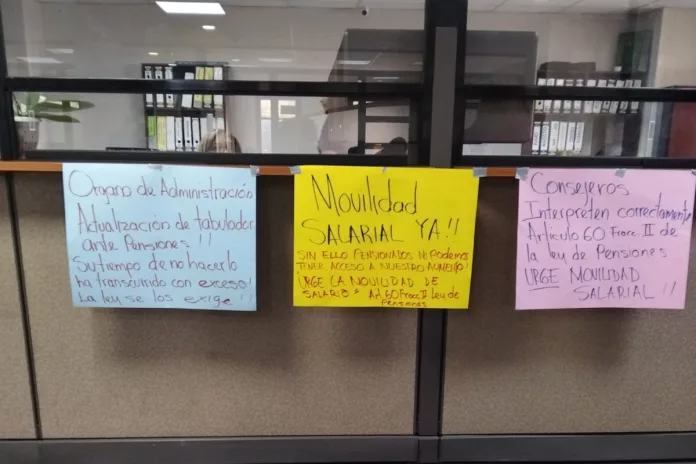 Organo de Administración
Actualización de tabulador
ante Pensiones !!
Su tiempo de no hacerlo
ha transcurrido con exceso!
La ley se los exige !!
Movilidad
SALARIAL YA !!
SIN ELLO PENSIONADOS No Podemos
TENER ACCESO A NUESTRO AUMENTO!
URGE LA MOVILIDAD DE
SALARIO Ad 60 Fracc II Ley de
Pensiones
Consejeros
Interpreten correctamente
Articulo 60 Fracc. II de
la ley de Pensiones
URGE MOVILIDAD
SALARIAL !!